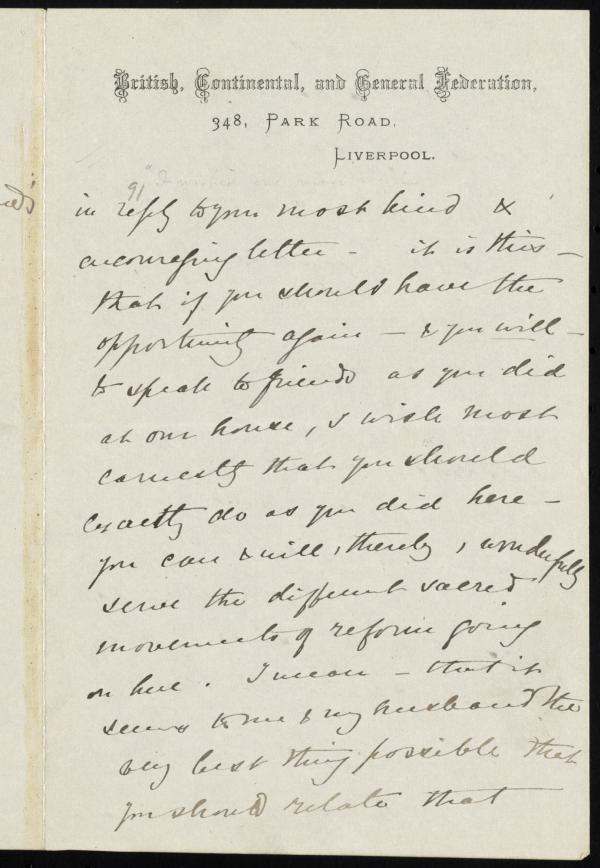 British, Continental, and General Federation,
348, PARK ROAD,
LIVERPOOL.
91
in reply to your most kind &
encouraging letter - it is this -
that if you should have the
opportunity again - & you will -
to speak to friends as you did
at our house, I wish most
earnestly that you should
exactly do as you did here -
you can & will, thereby, wonderfully
serve the different sacred
movements of reform going
on here. I mean - that it
seems to me & my husband the
very best thing possible that
you should relate that